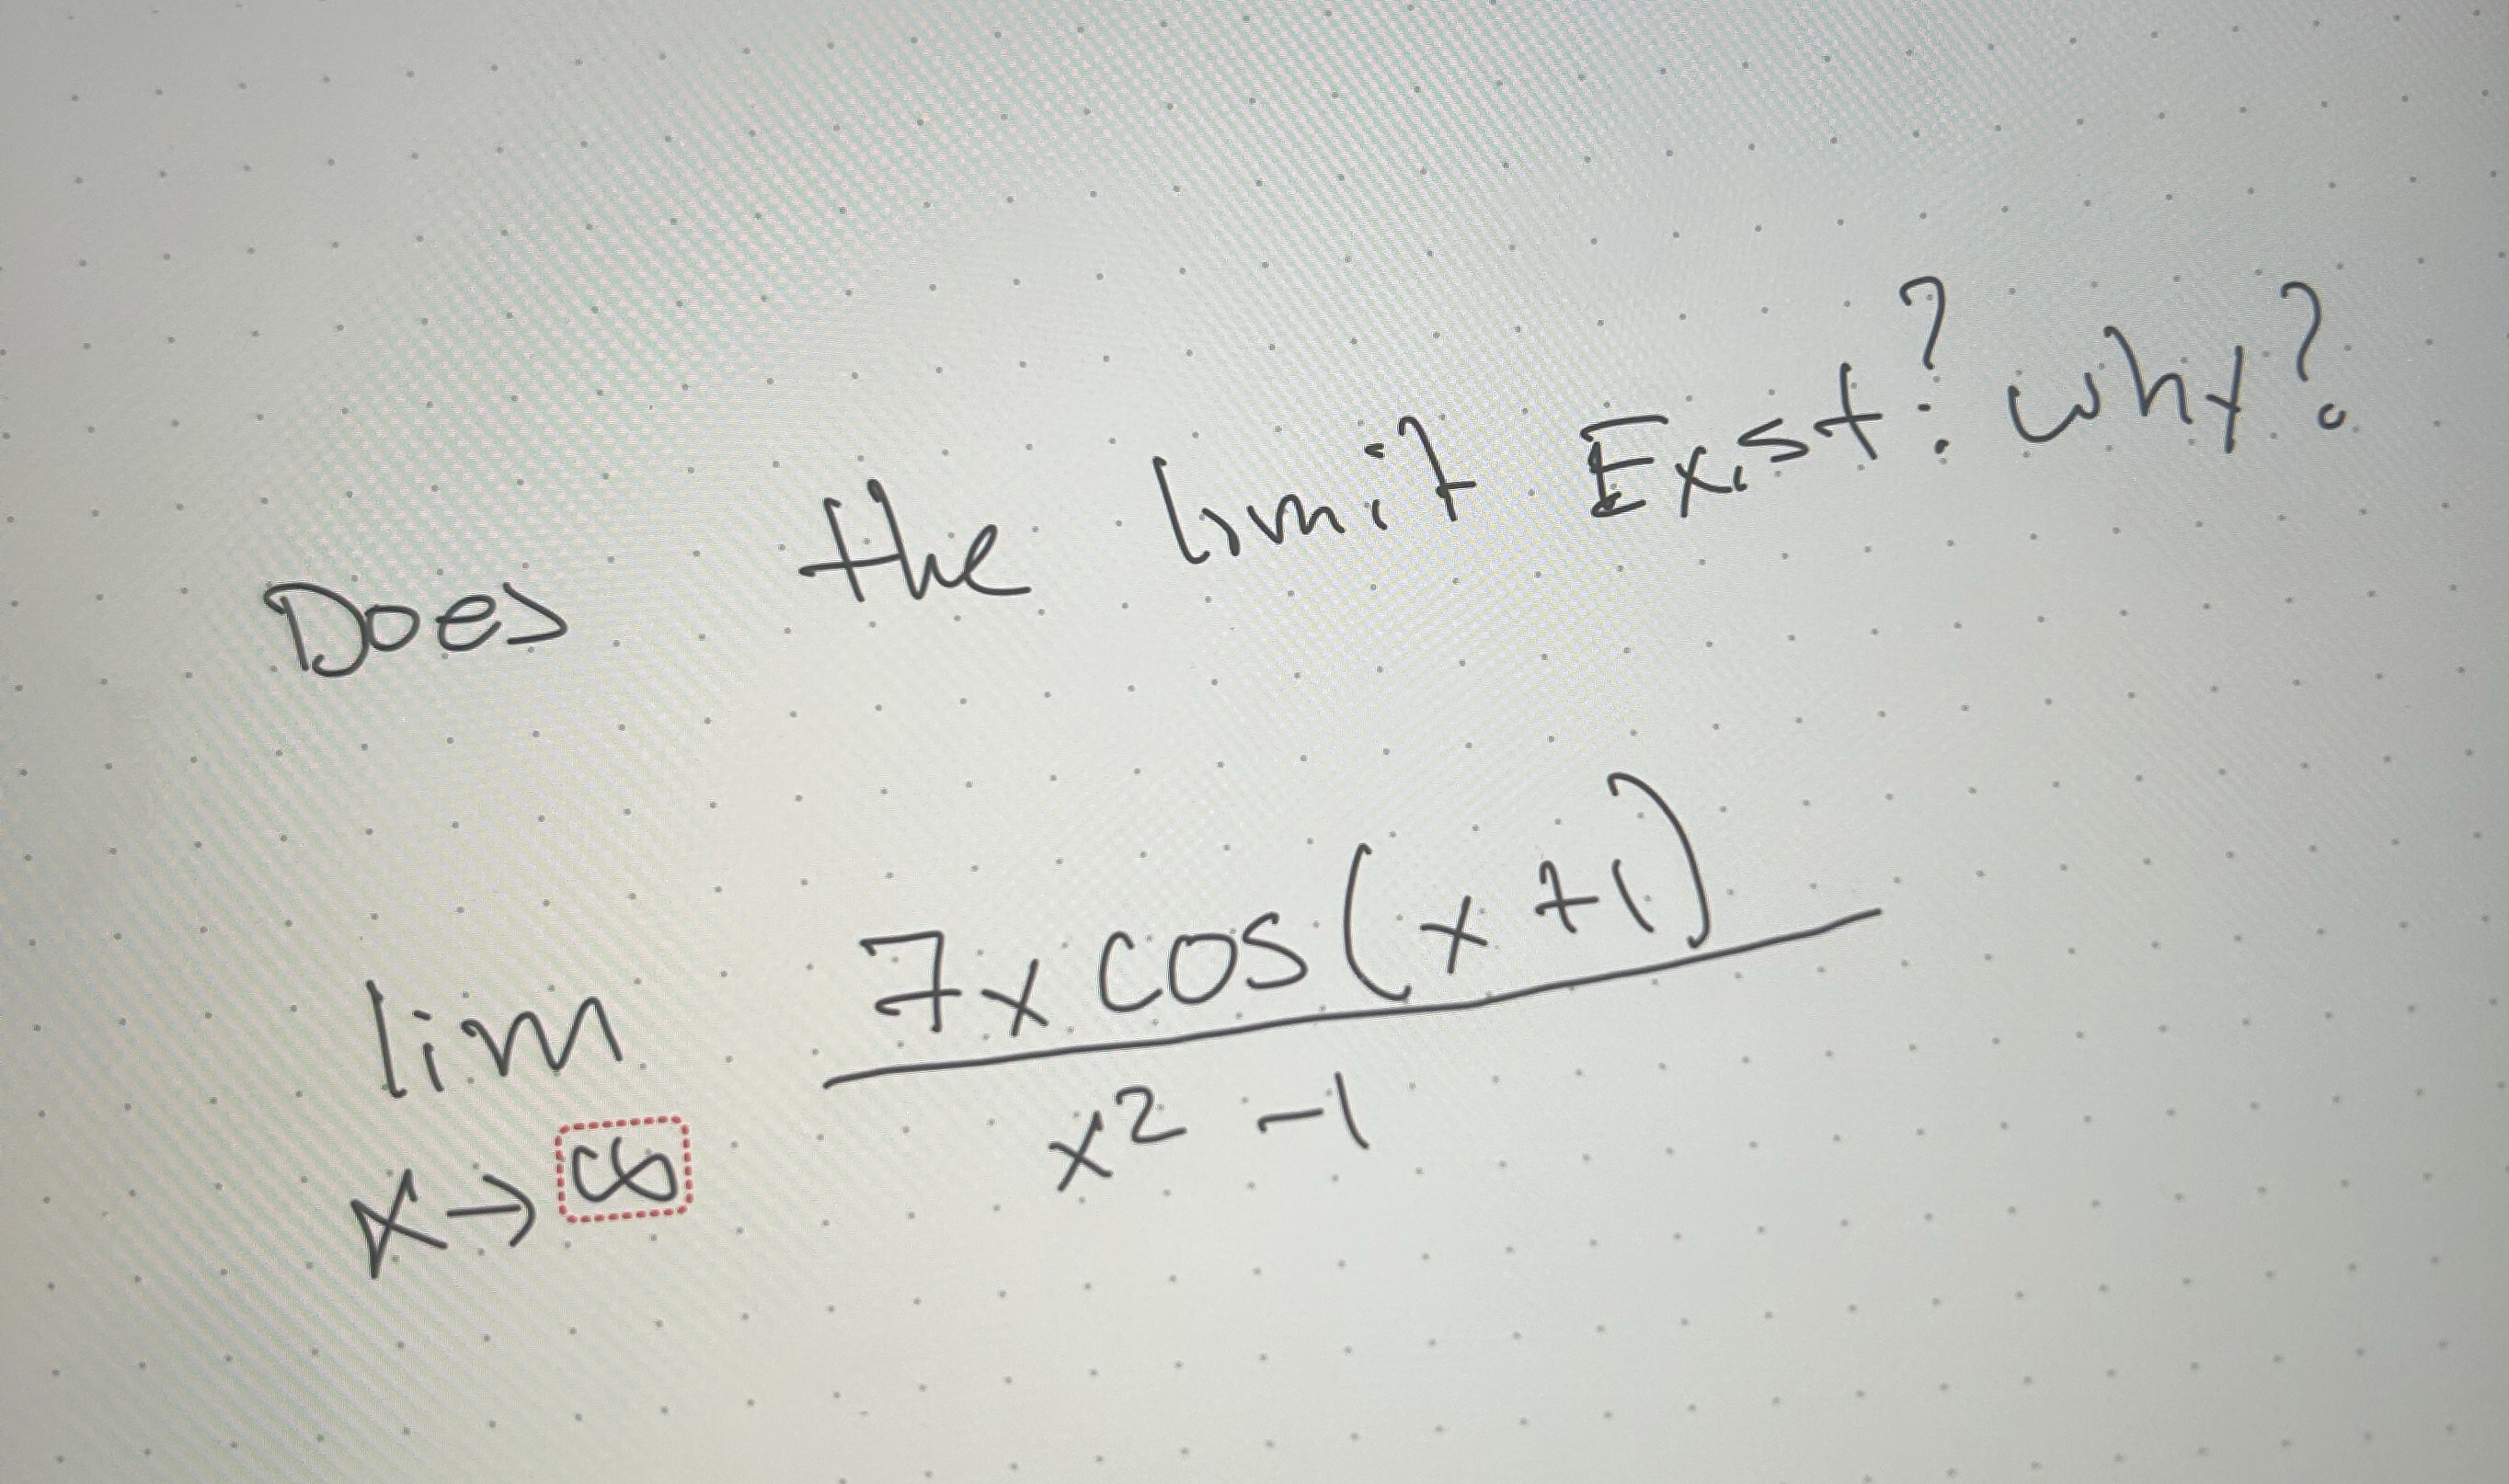 Does the limit Exist? why?
lim 7x cos(x+1)
x→∞ x² -1